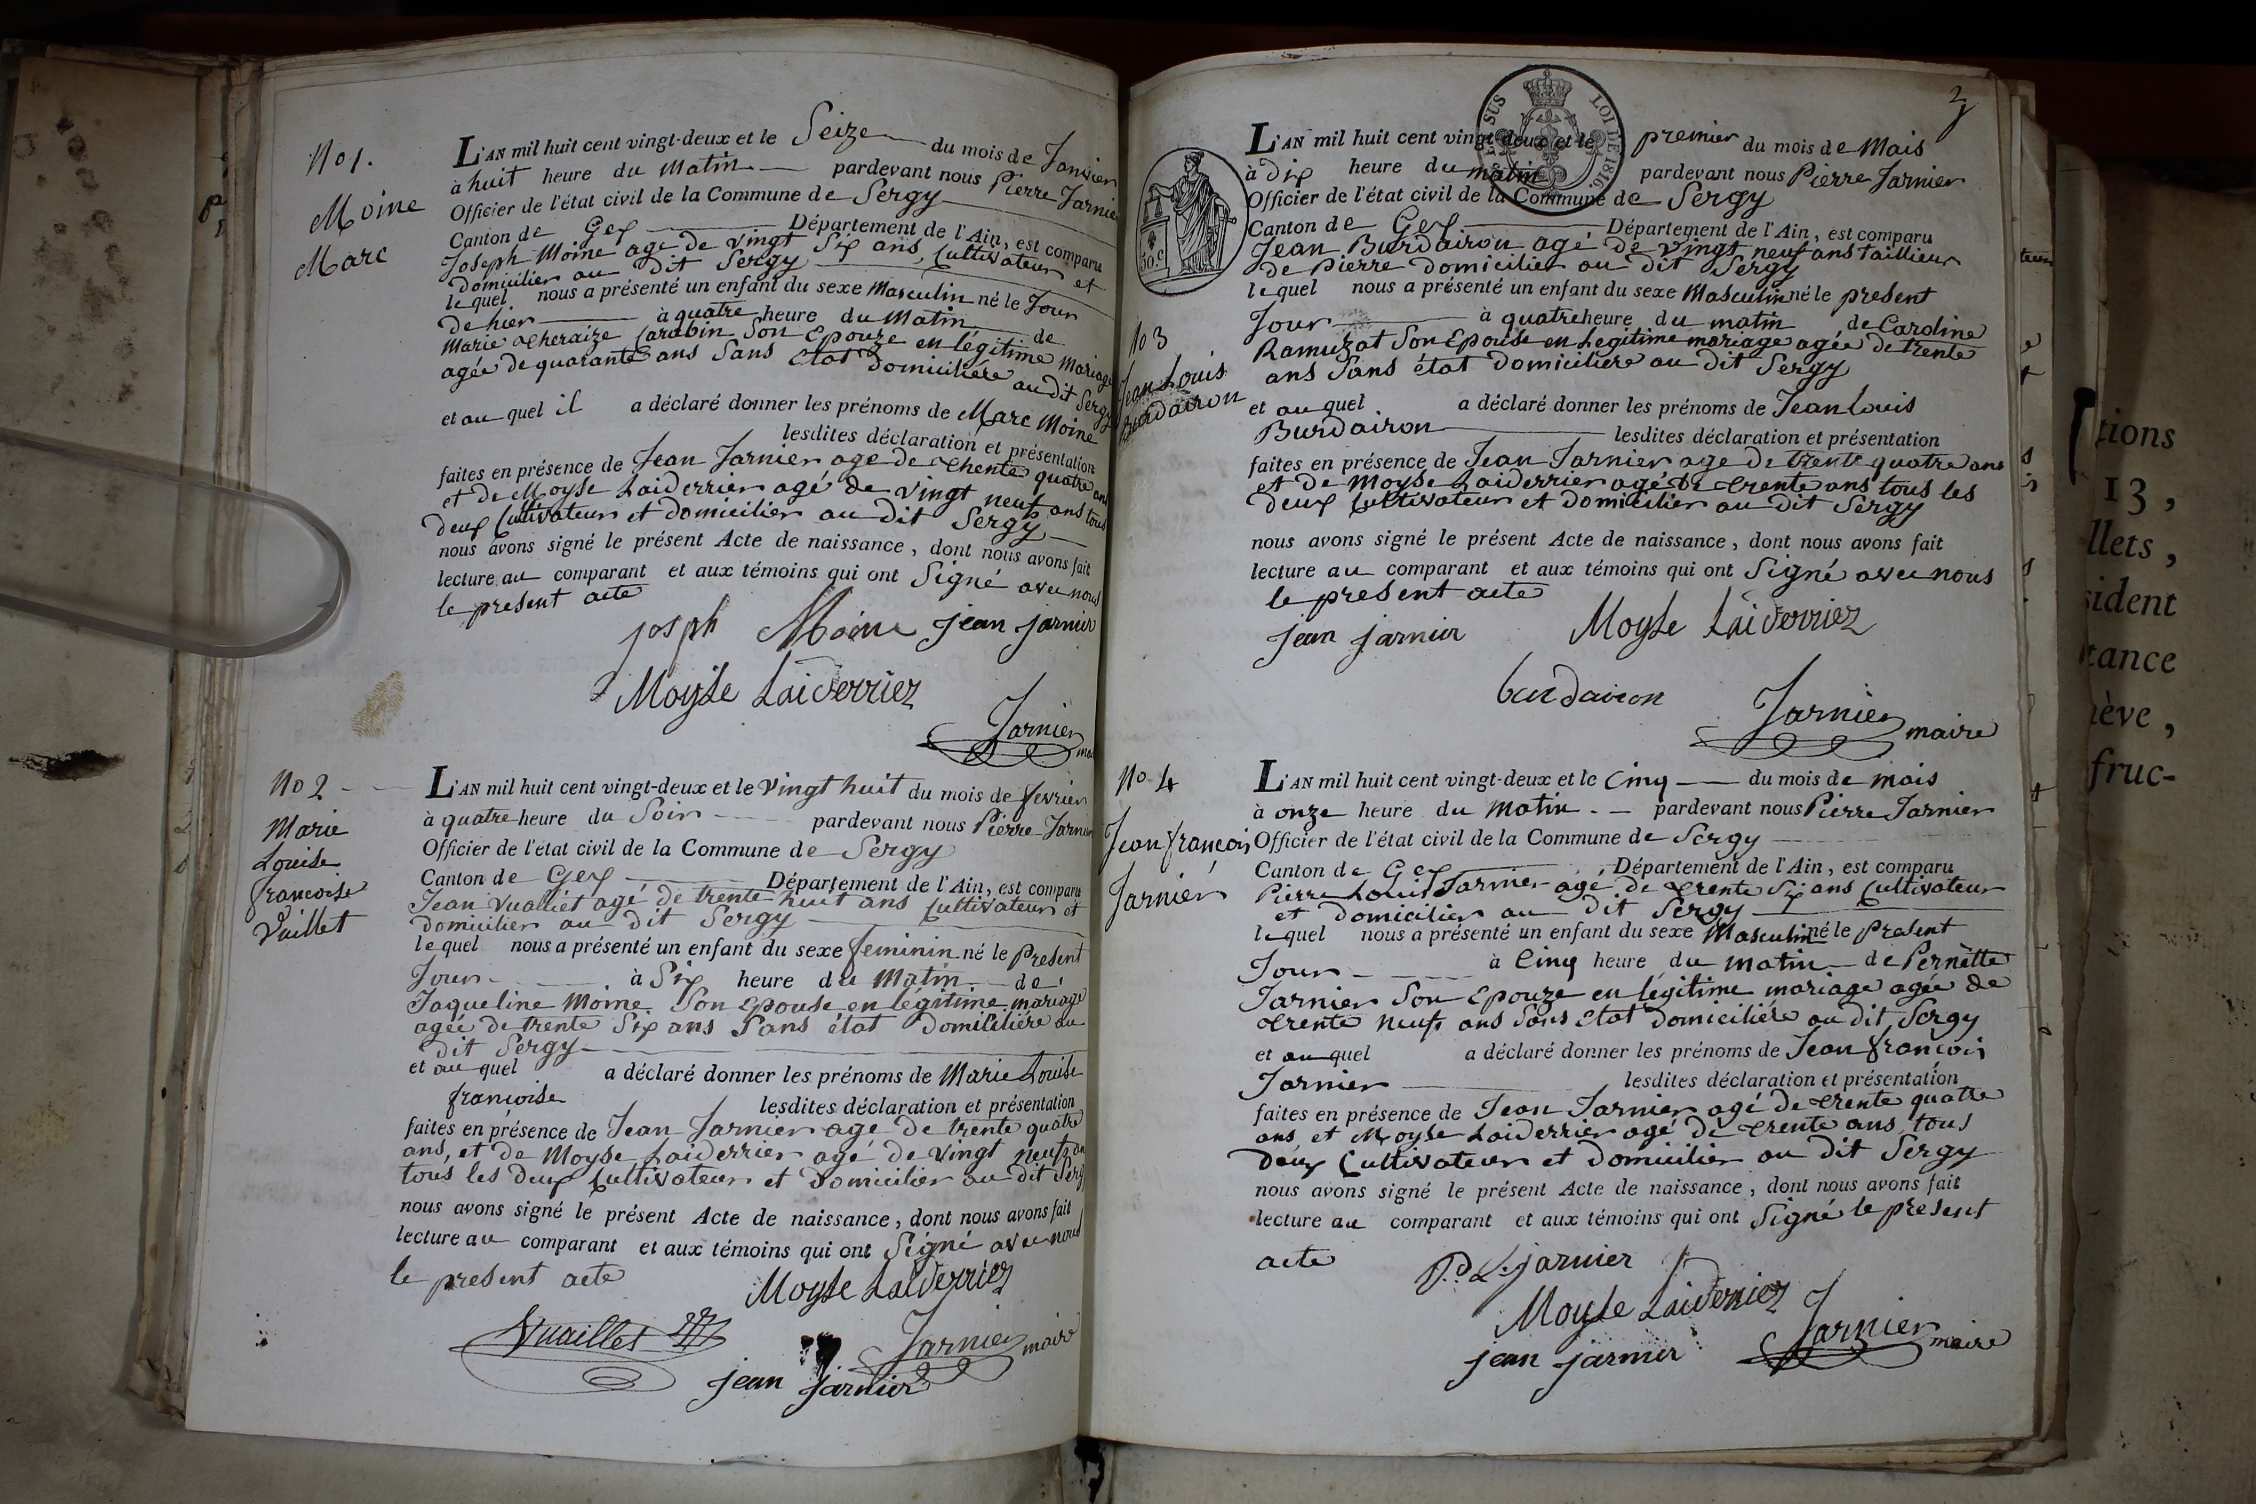 No 1.
Moine
Marc
L'AN mil huit cent vingt-deux et le Seize du mois de Janvier
à huit heure du matin pardevant nous Pierre Jarnier
Officier de l'état civil de la Commune de Sergy
Canton de Gex Département de l'Ain, est comparu
Joseph Moine agé de vingt Six ans, Cultivateur et
domicilier au dit Sergy
lequel nous a présenté un enfant du sexe Masculin né le Jour
de hier à quatre heure du Matin de
Marie Cheraize Carabin Son Epouze en légitime mariage
agée de quarante ans Sans Etat Domiciliére au dit Sergy
et au quel il a déclaré donner les prénoms de Marc Moine
lesdites déclaration et présentation
faites en présence de Jean Jarnier agé de Chente quatre ans
et de Moyse Laiderrier agé de vingt neuf ans tous
deux Cultivateur et domicilier au dit Sergy
nous avons signé le présent Acte de naissance, dont nous avons fait
lecture au comparant et aux témoins qui ont Signé avec nous
le present acte
josph Moine jean jarnier
Moyse Laiderriez
Jarnier
No 2
Marie
Louise
francoise
Vuillet
L'AN mil huit cent vingt-deux et le Vingt huit du mois de fevrier
à quatre heure du Soir pardevant nous Pierre Jarnier
Officier de l'état civil de la Commune de Sergy
Canton de Gex Département de l'Ain, est comparu
Jean Vualliet agé de trente huit ans Cultivateur et
domicilier au dit Sergy
lequel nous a présenté un enfant du sexe feminin né le Present
Jour à Six heure du Matin de
Jaqueline Moine Son Epouse en légitime mariage
agée de trente Six ans Sans état domiciliére au
dit Sergy
et au quel a déclaré donner les prénoms de Marie Louise
françoise lesdites déclaration et présentation
faites en présence de Jean Jarnier agé de trente quatre
ans, et de Moyse Laiderrier agé de vingt neuf an
tous les deux Cultivateur et domicilier au dit Sergy
nous avons signé le présent Acte de naissance, dont nous avons fait
lecture au comparant et aux témoins qui ont Signé avec nous
le present acte
Moyse Laiderriez
Vuaillet
Jarnier maire
jean jarnier
3
SUS
LOI DE 1816.
50 c.
L'AN mil huit cent vingt-deux et le premier du mois de Mais
à dix heure du matin pardevant nous Pierre Jarnier
Officier de l'état civil de la Commune de Sergy
Canton de Gex Département de l'Ain, est comparu
Jean Burdairon agé de vingt neuf ans taillieur
de Pierre domicilier au dit Sergy
lequel nous a présenté un enfant du sexe Masculin né le present
Jour à quatre heure du matin de Caroline
Ramuzat Son Epouse en Legitime mariage agée de trente
ans Sans état domiciliere au dit Sergy
No 3
Jean Louis
Burdairon
et au quel a déclaré donner les prénoms de Jean Louis
Burdairon lesdites déclaration et présentation
faites en présence de Jean Jarnier agé de trente quatre ans
et de Moyse Laiderrier agé de Trente ans tous les
deux Cultivateur et Domicilier au dit Sergy
nous avons signé le présent Acte de naissance, dont nous avons fait
lecture au comparant et aux témoins qui ont Signé avec nous
le present acte
jean jarnier Moyse Laiderriez
burdairon Jarnier maire
No 4
Jean françois
Jarnier
L'AN mil huit cent vingt-deux et le Cinq du mois de mais
à onze heure du Matin pardevant nous Pierre Jarnier
Officier de l'état civil de la Commune de Sergy
Canton de Gex Département de l'Ain, est comparu
Pierre Louis Jarnier agé de trente Six ans Cultivateur
et domicilier au dit Sergy
lequel nous a présenté un enfant du sexe Masculin né le Present
Jour à Cinq heure du matin de Pernètte
Jarnier Son Epouze en légitime mariage agée de
trente neuf ans Sans Etat domiciliére au dit Sergy
et au quel a déclaré donner les prénoms de Jean françois
Jarnier lesdites déclaration et présentation
faites en présence de Jean Jarnier agé de trente quatre
ans, et Moyse Laiderrier agé de trente ans, tous
deux Cultivateur et domicilier au dit Sergy
nous avons signé le présent Acte de naissance, dont nous avons fait
lecture au comparant et aux témoins qui ont Signé le présent
acte
jarnier
Moyse Laiderriez
jean jarnier
Jarnier maire
tions
13,
llets,
sident
tance
ève,
fruc-